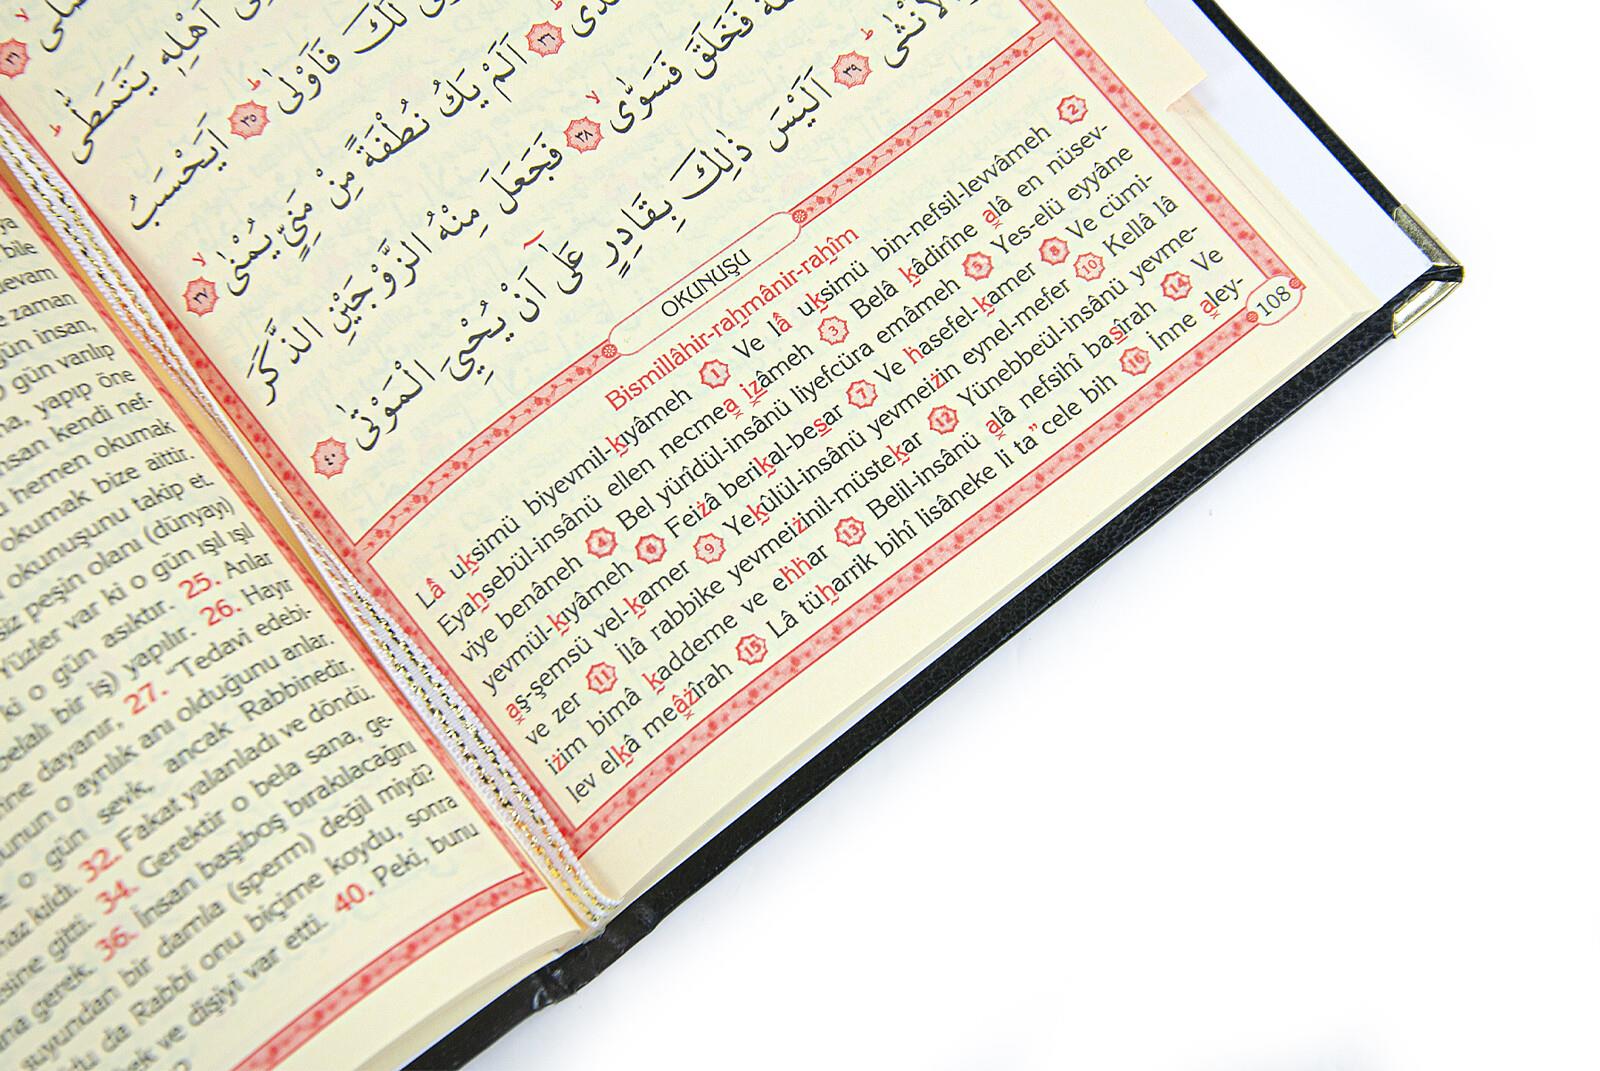 ya
bile
devam
e zaman
gün insan,
O gün varılıp
na, yapıp öne
insan kendi nef-
u hemen okumak
okumak bize aittir.
okunuşunu takip et.
siz peşin olanı (dünyayı)
Yüzler var ki o gün ışıl ışıl
ki o gün asıktır. 25. Anlar
belalı bir iş) yapılır. 26. Hayır
ine dayanır, 27. "Tedavi edebi-
bunun o ayrılık anı olduğunu anlar.
e o gün sevk, ancak Rabbinedir.
naz kıldı. 32. Fakat yalanladı ve döndü.
sine gitti. 34. Gerektir o bela sana, ge-
ana gerek. 36. İnsan başıboş bırakılacağını
suyundan bir damla (sperm) değil miydi?
du da Rabbi onu biçime koydu, sonra
ek ve dişiyi var etti. 40. Peki, bunu
اَهْلِهٖ يَتَمَطّٰى
لَكَ فَاَوْلٰى ﴿٣٥﴾ اَيَحْسَبُ
﴿٣٦﴾ اَلَمْ يَكُ نُطْفَةً مِنْ مَنِيٍّ يُمْنٰى ﴿٣٧﴾
فَخَلَقَ فَسَوّٰى ﴿٣٨﴾ فَجَعَلَ مِنْهُ الزَّوْجَيْنِ الذَّكَرَ
وَالْاُنْثٰى ﴿٣٩﴾ اَلَيْسَ ذٰلِكَ بِقَادِرٍ عَلٰٓى اَنْ يُحْيِيَ الْمَوْتٰى ﴿٤٠﴾
OKUNUŞU
Bismillâhir-rahmânir-rahîm
Lâ uksimü biyevmil-kıyâmeh 1 Ve lâ uksimü bin-nefsil-levvâmeh 2
Eyahsebül-insânü ellen necmea izâmeh 3 Belâ kâdirîne alâ en nüsev-
viye benâneh 4 Bel yürîdül-insânü liyefcüra emâmeh 5 Yes-elü eyyâne
yevmül-kıyâmeh 6 Feizâ berikal-besar 7 Ve hasefel-kamer 8 Ve cümi-
aş-şemsü vel-kamer 9 Yekûlül-insânü yevmeizin eynel-mefer 10 Kellâ lâ
ve zer 11 İlâ rabbike yevmeizinil-müstekar 12 Yünebbeül-insânü yevme-
izim bimâ kaddeme ve ehhar 13 Belil-insânü alâ nefsihî basîrah 14 Ve
lev elkâ meâzîrah 15 Lâ tüharrik bihî lisâneke li ta"cele bih 16 İnne aley-
108